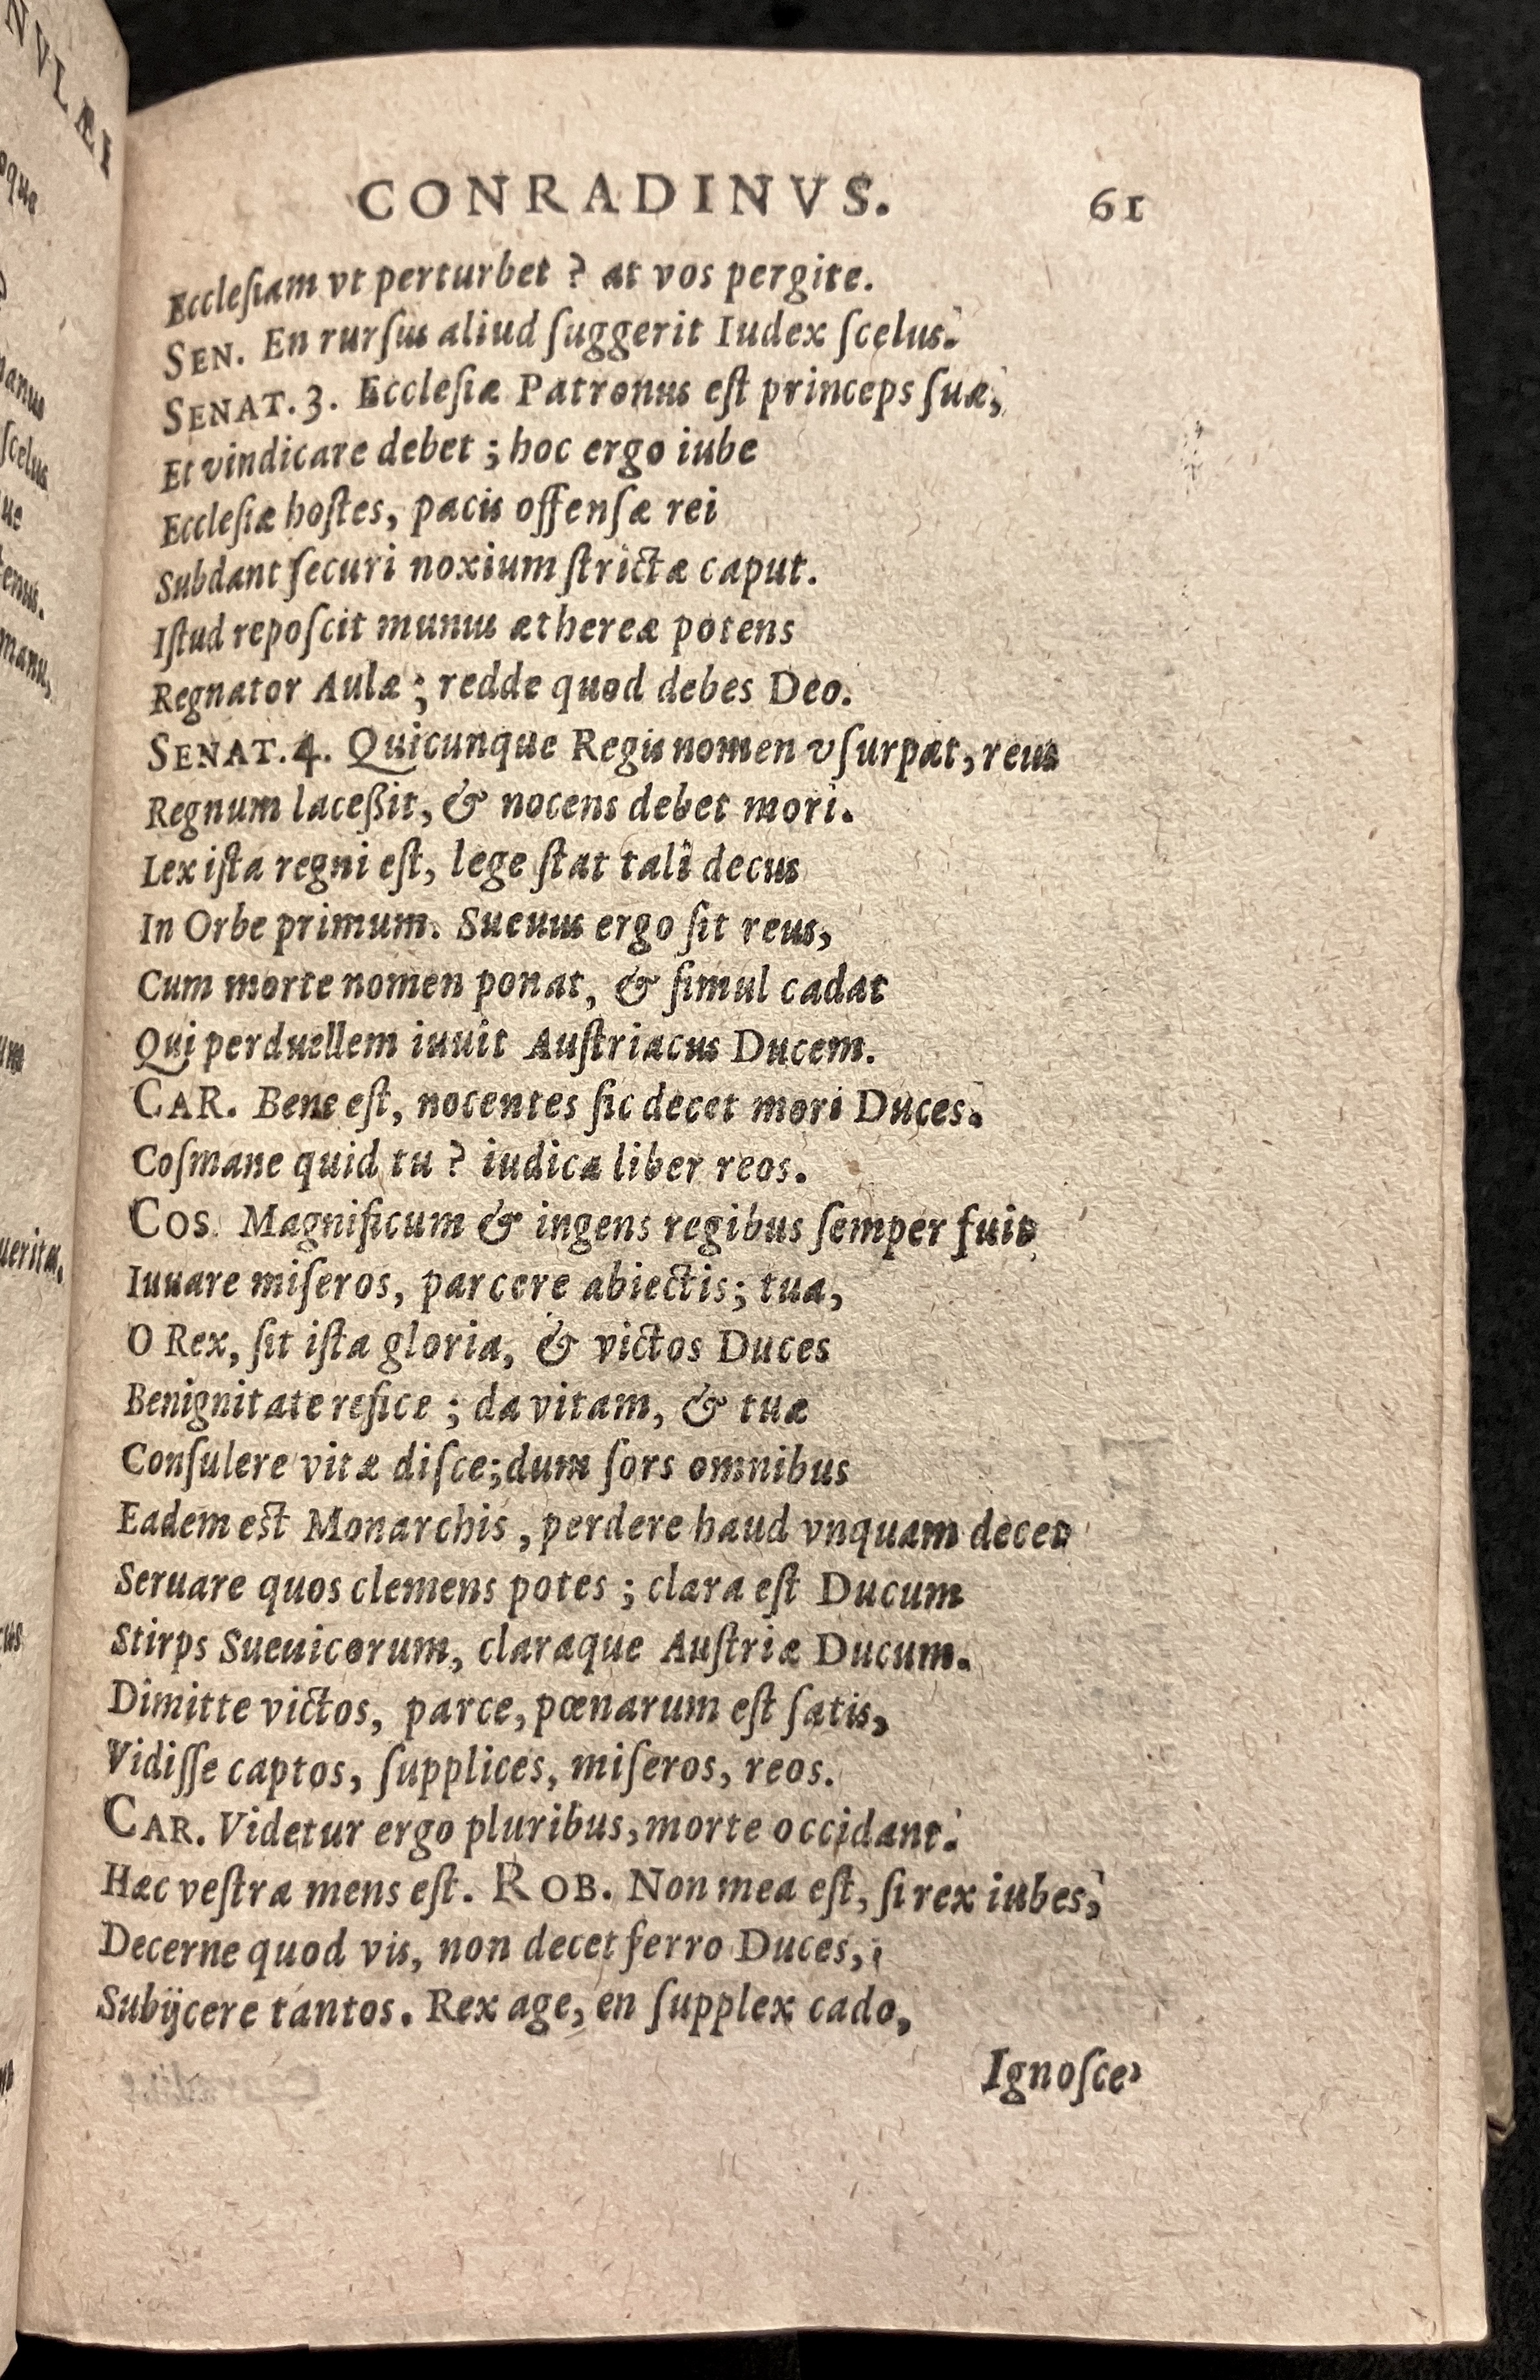 CONRADINVS. 61
Eccleſiam vt perturbet ? at vos pergite.
SEN. En rurſus aliud ſuggerit Iudex ſcelus.
SENAT.3. Eccleſiæ Patronus eſt princeps ſuæ,
Et vindicare debet ; hoc ergo iube
Eccleſiæ hoſtes, pacis offenſæ rei
Subdant ſecuri noxium ſtrictæ caput.
Iſtud repoſcit munus æthereæ potens
Regnator Aulæ ; redde quod debes Deo.
SENAT.4. Quicunque Regis nomen vſurpat, reus
Regnum laceßit, & nocens debet mori.
Lex iſta regni eſt, lege ſtat tali decus
In Orbe primum. Sueuus ergo ſit reus,
Cum morte nomen ponat, & ſimul cadat
Qui perduellem iuuit Auſtriacus Ducem.
CAR. Bene eſt, nocentes ſic decet mori Duces.
Coſmane quid tu ? iudica liber reos.
COS. Magnificum & ingens regibus ſemper fuit
Iuuare miſeros, parcere abiectis; tua,
O Rex, ſit iſta gloria, & victos Duces
Benignitate refice ; da vitam, & tuæ
Conſulere vitæ diſce; dum ſors omnibus
Eadem est Monarchis , perdere haud vnquam decet
Seruare quos clemens potes ; clara eſt Ducum
Stirps Sueuicorum, claraque Auſtriæ Ducum.
Dimitte victos, parce, pœnarum eſt ſatis,
Vidiſſe captos, ſupplices, miſeros, reos.
CAR. Videtur ergo pluribus, morte occidant.
Hæc veſtra mens eſt. ROB. Non mea eſt, ſi rex iubes,
Decerne quod vis, non decet ferro Duces,
Subijcere tantos. Rex age, en ſupplex cado,
Ignoſce
NVLÆI
oque
manus
ſcelus
ue
tenus.
manu,
um
uerita.
cus